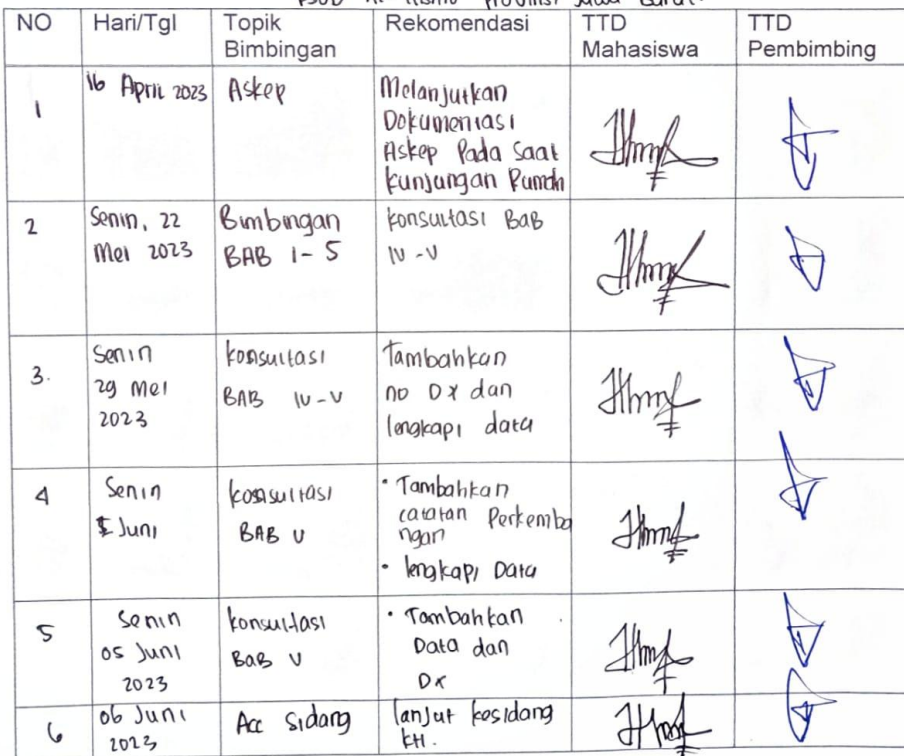 RSUD Al Ihsan Provinsi Jawa Barat.
NO Hari/Tgl Topik Bimbingan Rekomendasi TTD Mahasiswa TTD Pembimbing
1
16 April 2023
Askep
Melanjutkan
Dokumentasi
Askep Pada Saat
kunjungan Rumah
2
Senin, 22
Mei 2023
Bimbingan
BAB 1-5
konsultasi BaB
IV-V
3.
Senin
29 Mei
2023
konsultasi
BAB IV-V
Tambahkan
no Dx dan
lengkapi data
4
Senin
5 Juni
konsultasi
BAB V
• Tambahkan
catatan Perkemba
ngan
• lengkapi Data
5
Senin
05 Juni
2023
konsultasi
BaB V
• Tambahkan
Data dan
Dx
6
06 Juni
2023
Acc Sidang
lanjut kesidang
KTI.